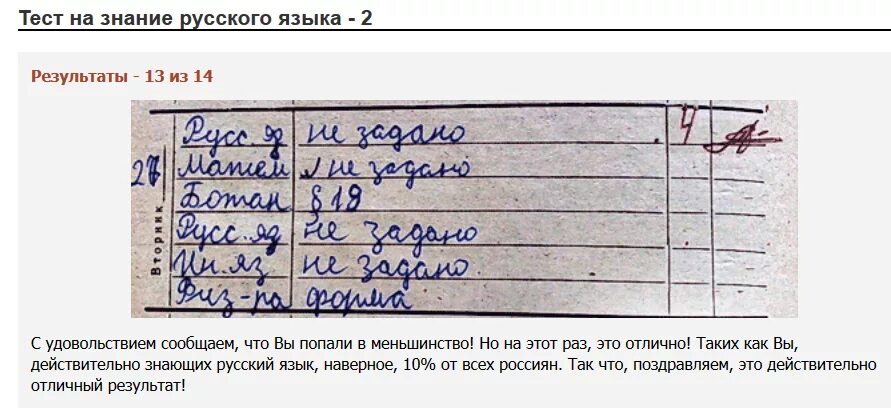 Тест на знание русского языка - 2
Результаты - 13 из 14
Русс.яз не задано 4
27 Матем не задано
Ботан § 18
Русс.яз не задано
Ин.яз не задано
Физ-ра форма
Вторник
С удовольствием сообщаем, что Вы попали в меньшинство! Но на этот раз, это отлично! Таких как Вы,
действительно знающих русский язык, наверное, 10% от всех россиян. Так что, поздравляем, это действительно
отличный результат!